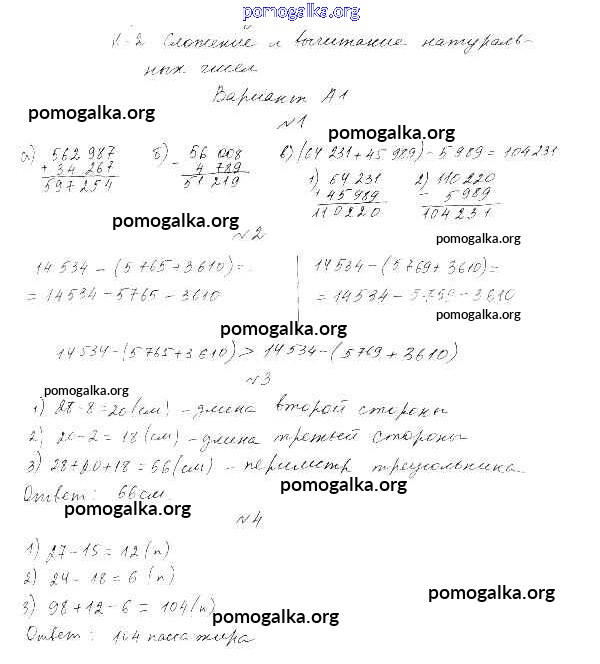 pomogalka.org
К-2 Сложение и вычитание натураль-
ных чисел
Вариант А1
pomogalka.org
№1
pomogalka.org
а) 562 987 б) 56 008 в) (64 231 + 45 989) - 5 989 = 104231
+ 34 267 - 4 789 1) 64 231 2) 110220
597 254 51 219 + 45 989 - 5989
110220 104231
pomogalka.org
№2
pomogalka.org
14 534 - (5 765 + 3610) = 14534 - (5769 + 3610) =
= 14534 - 5765 - 3610 = 14534 - 5769 - 3610
pomogalka.org
pomogalka.org
14534 - (5765 + 3610) > 14534 - (5769 + 3610)
№3
pomogalka.org
1) 28 - 8 = 20 (см) - длина второй стороны
2) 20 - 2 = 18 (см) - длина третьей стороны
3) 28 + 20 + 18 = 66 (см) - периметр треугольника.
Ответ: 66 см.
pomogalka.org
pomogalka.org
№4
1) 27 - 15 = 12 (п)
2) 24 - 18 = 6 (п)
3) 98 + 12 - 6 = 104 (п)
pomogalka.org
pomogalka.org
Ответ: 104 пассажира